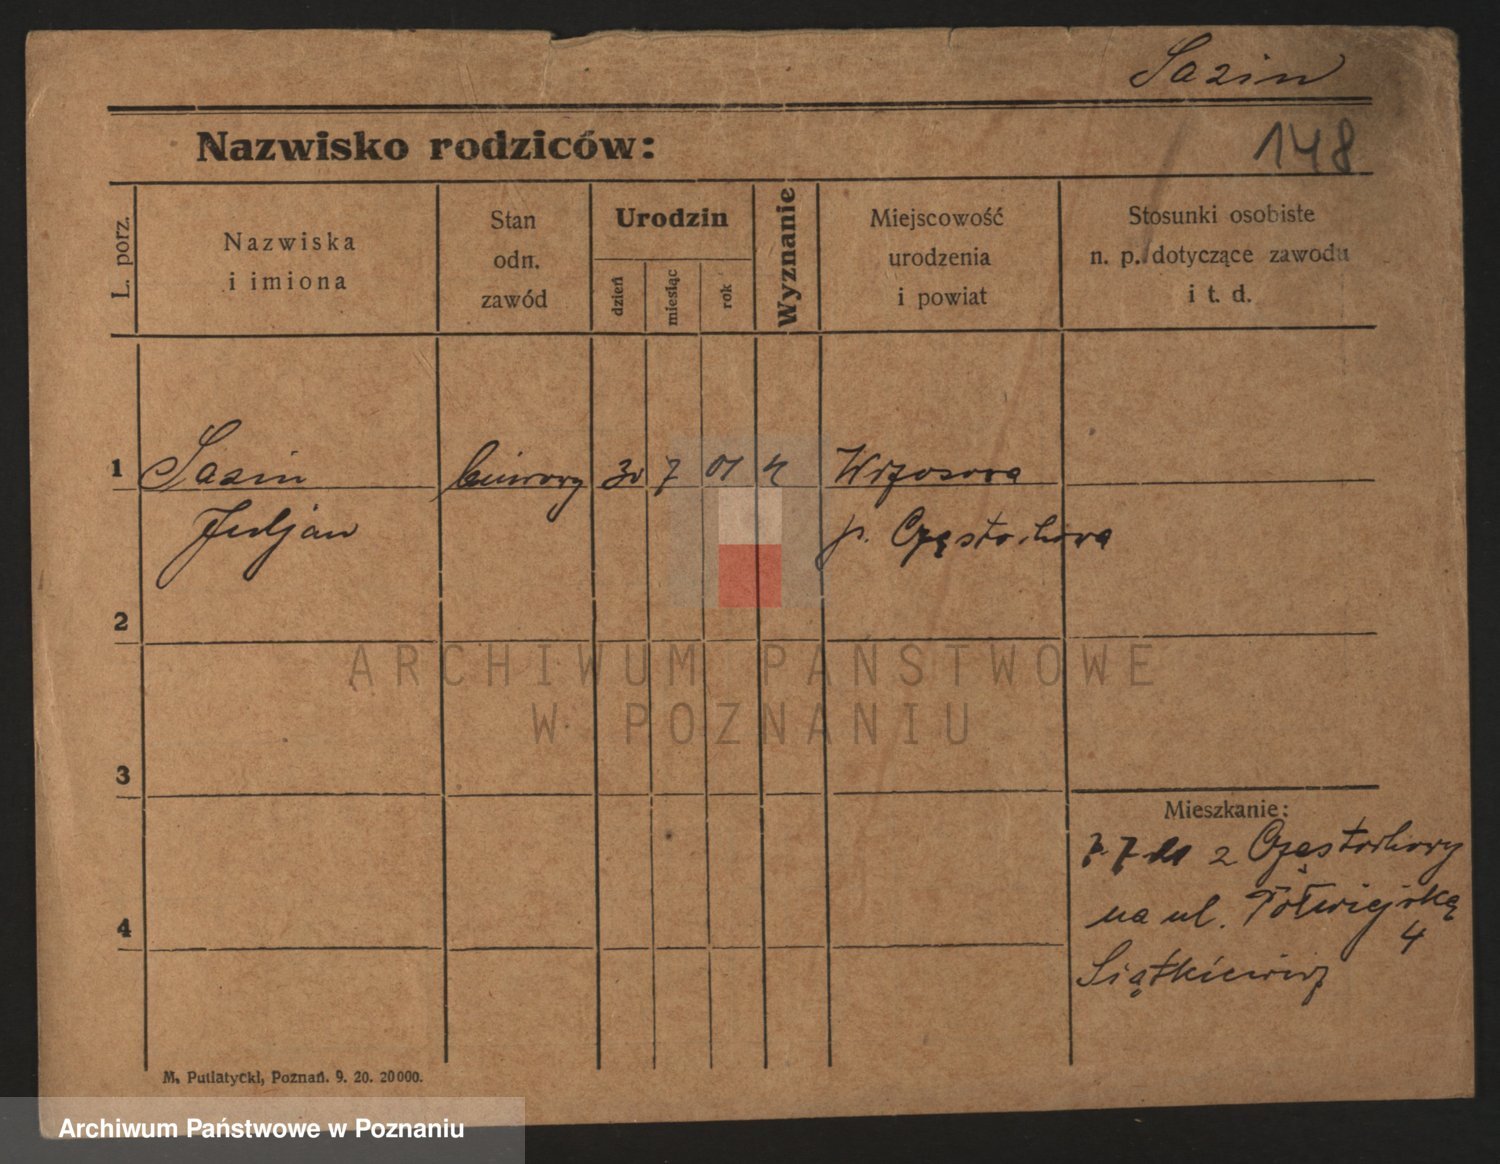 Sazin
Nazwisko rodziców:
148
L. porz.
Nazwiska
i imiona
Stan
odn.
zawód
Urodzin
dzień
miesiąc
rok
Wyznanie
Miejscowość
urodzenia
i powiat
Stosunki osobiste
n. p. dotyczące zawodu
i t. d.
1
Sazin
biurowy
30
7
01
Wrzosowa
Juljan
p. Częstochowa
2
3
4
Mieszkanie:
7. 7. 21 z Częstochowy
na ul. Półwiejską
4
Siątkiewicz
M. Putiatycki, Poznań. 9. 20. 20000.
ARCHIWUM PAŃSTWOWE
W POZNANIU
Archiwum Państwowe w Poznaniu